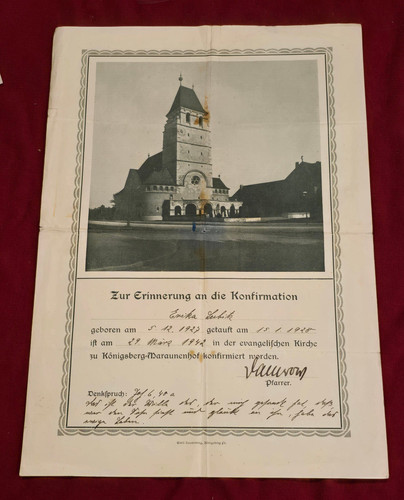 Zur Erinnerung an die Konfirmation
Erika Lubik
geboren am 5.12.1927 getauft am 15.1.1928
ist am 29. März 1942 in der evangelischen Kirche
zu Königsberg-Maraunenhof konfirmiert worden.
Pfarrer.
Denkspruch: Joh 6, 40 a
das ist der Wille des, der mich gesandt hat, daß
wer den Sohn sieht und glaubt an ihn, habe das
ewige Leben